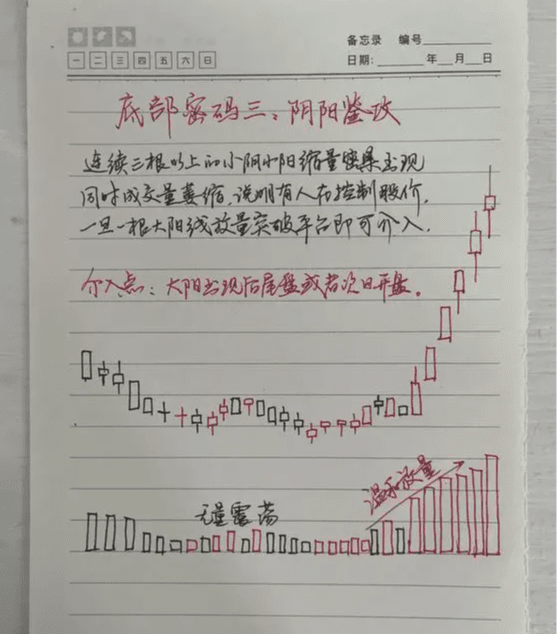 备忘录 编号
一 二 三 四 五 六 日
日期: 年 月 日
底部密码三：阴阳鉴攻
连续三根以上的小阴小阳缩量密集出现
同时成交量萎缩.说明有人在控制股价.
一旦一根大阳线放量突破平台即可介入.
介入点：大阳出现后尾盘或者次日开盘.
无量震荡
温和放量